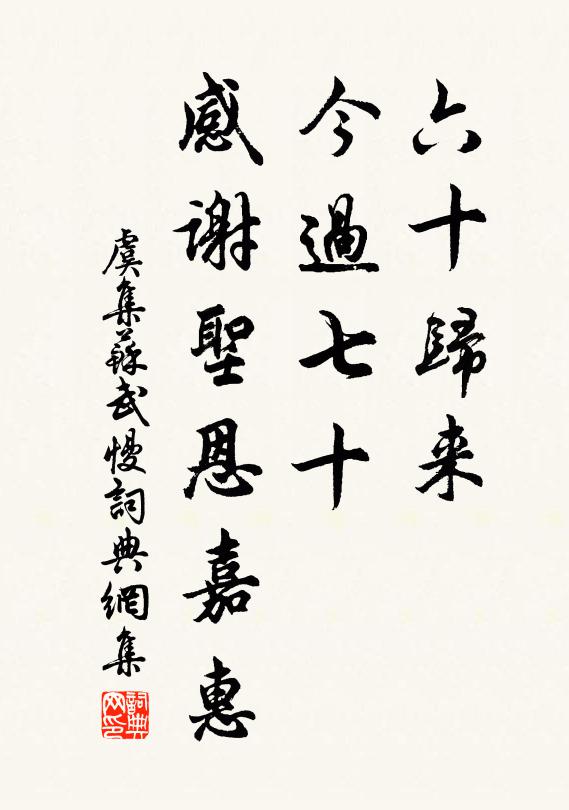 六十歸来
今過七十
感謝聖恩嘉惠
虞集蘇武慢詞典網集
詞典网印